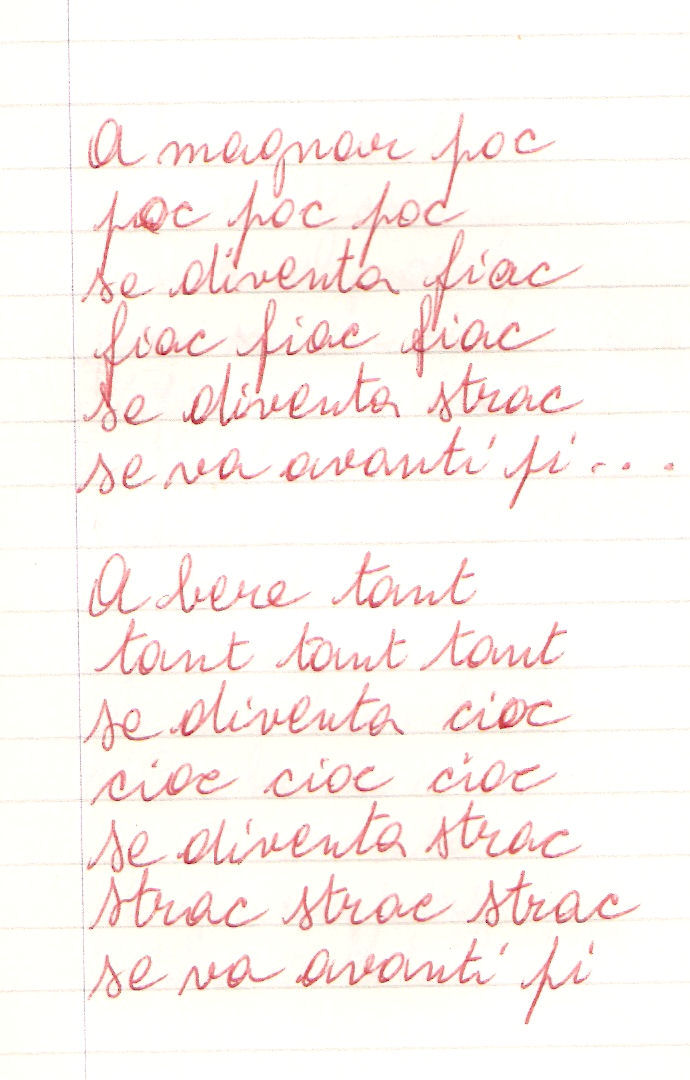 A magnar poc
poc poc poc
se diventa fiac
fiac fiac fiac
se diventa strac
se va avanti pi...
A bere tant
tant tant tant
se diventa cioc
cioc cioc cioc
se diventa strac
strac strac strac
se va avanti pi